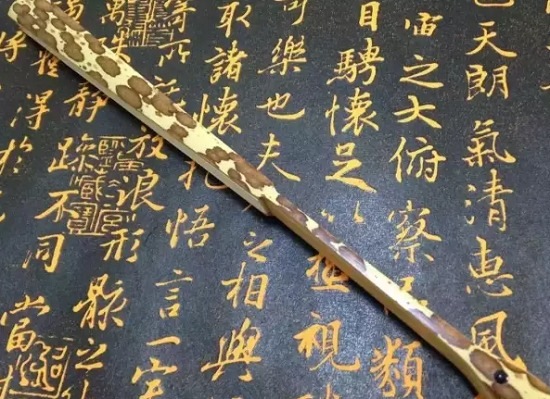 也天朗氣清惠風
宙之大俯察類
目騁懷足極視
可樂也夫之相與
取諸懷悟言一室
寄所放浪形骸之
萬殊靜躁不同當
得於